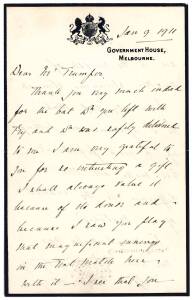 Jan 9. 1911
GOVERNMENT HOUSE,
MELBOURNE.
Dear Mr Trumper
Thank you very much indeed
for the bat wh you left with
Fry and wh was safely delivered
to me. I am very grateful to
you for so interesting a gift
I shall always value it
because of its donor and
because I saw you play
that magnificent innings
in the Test Match here
with it — I see that you